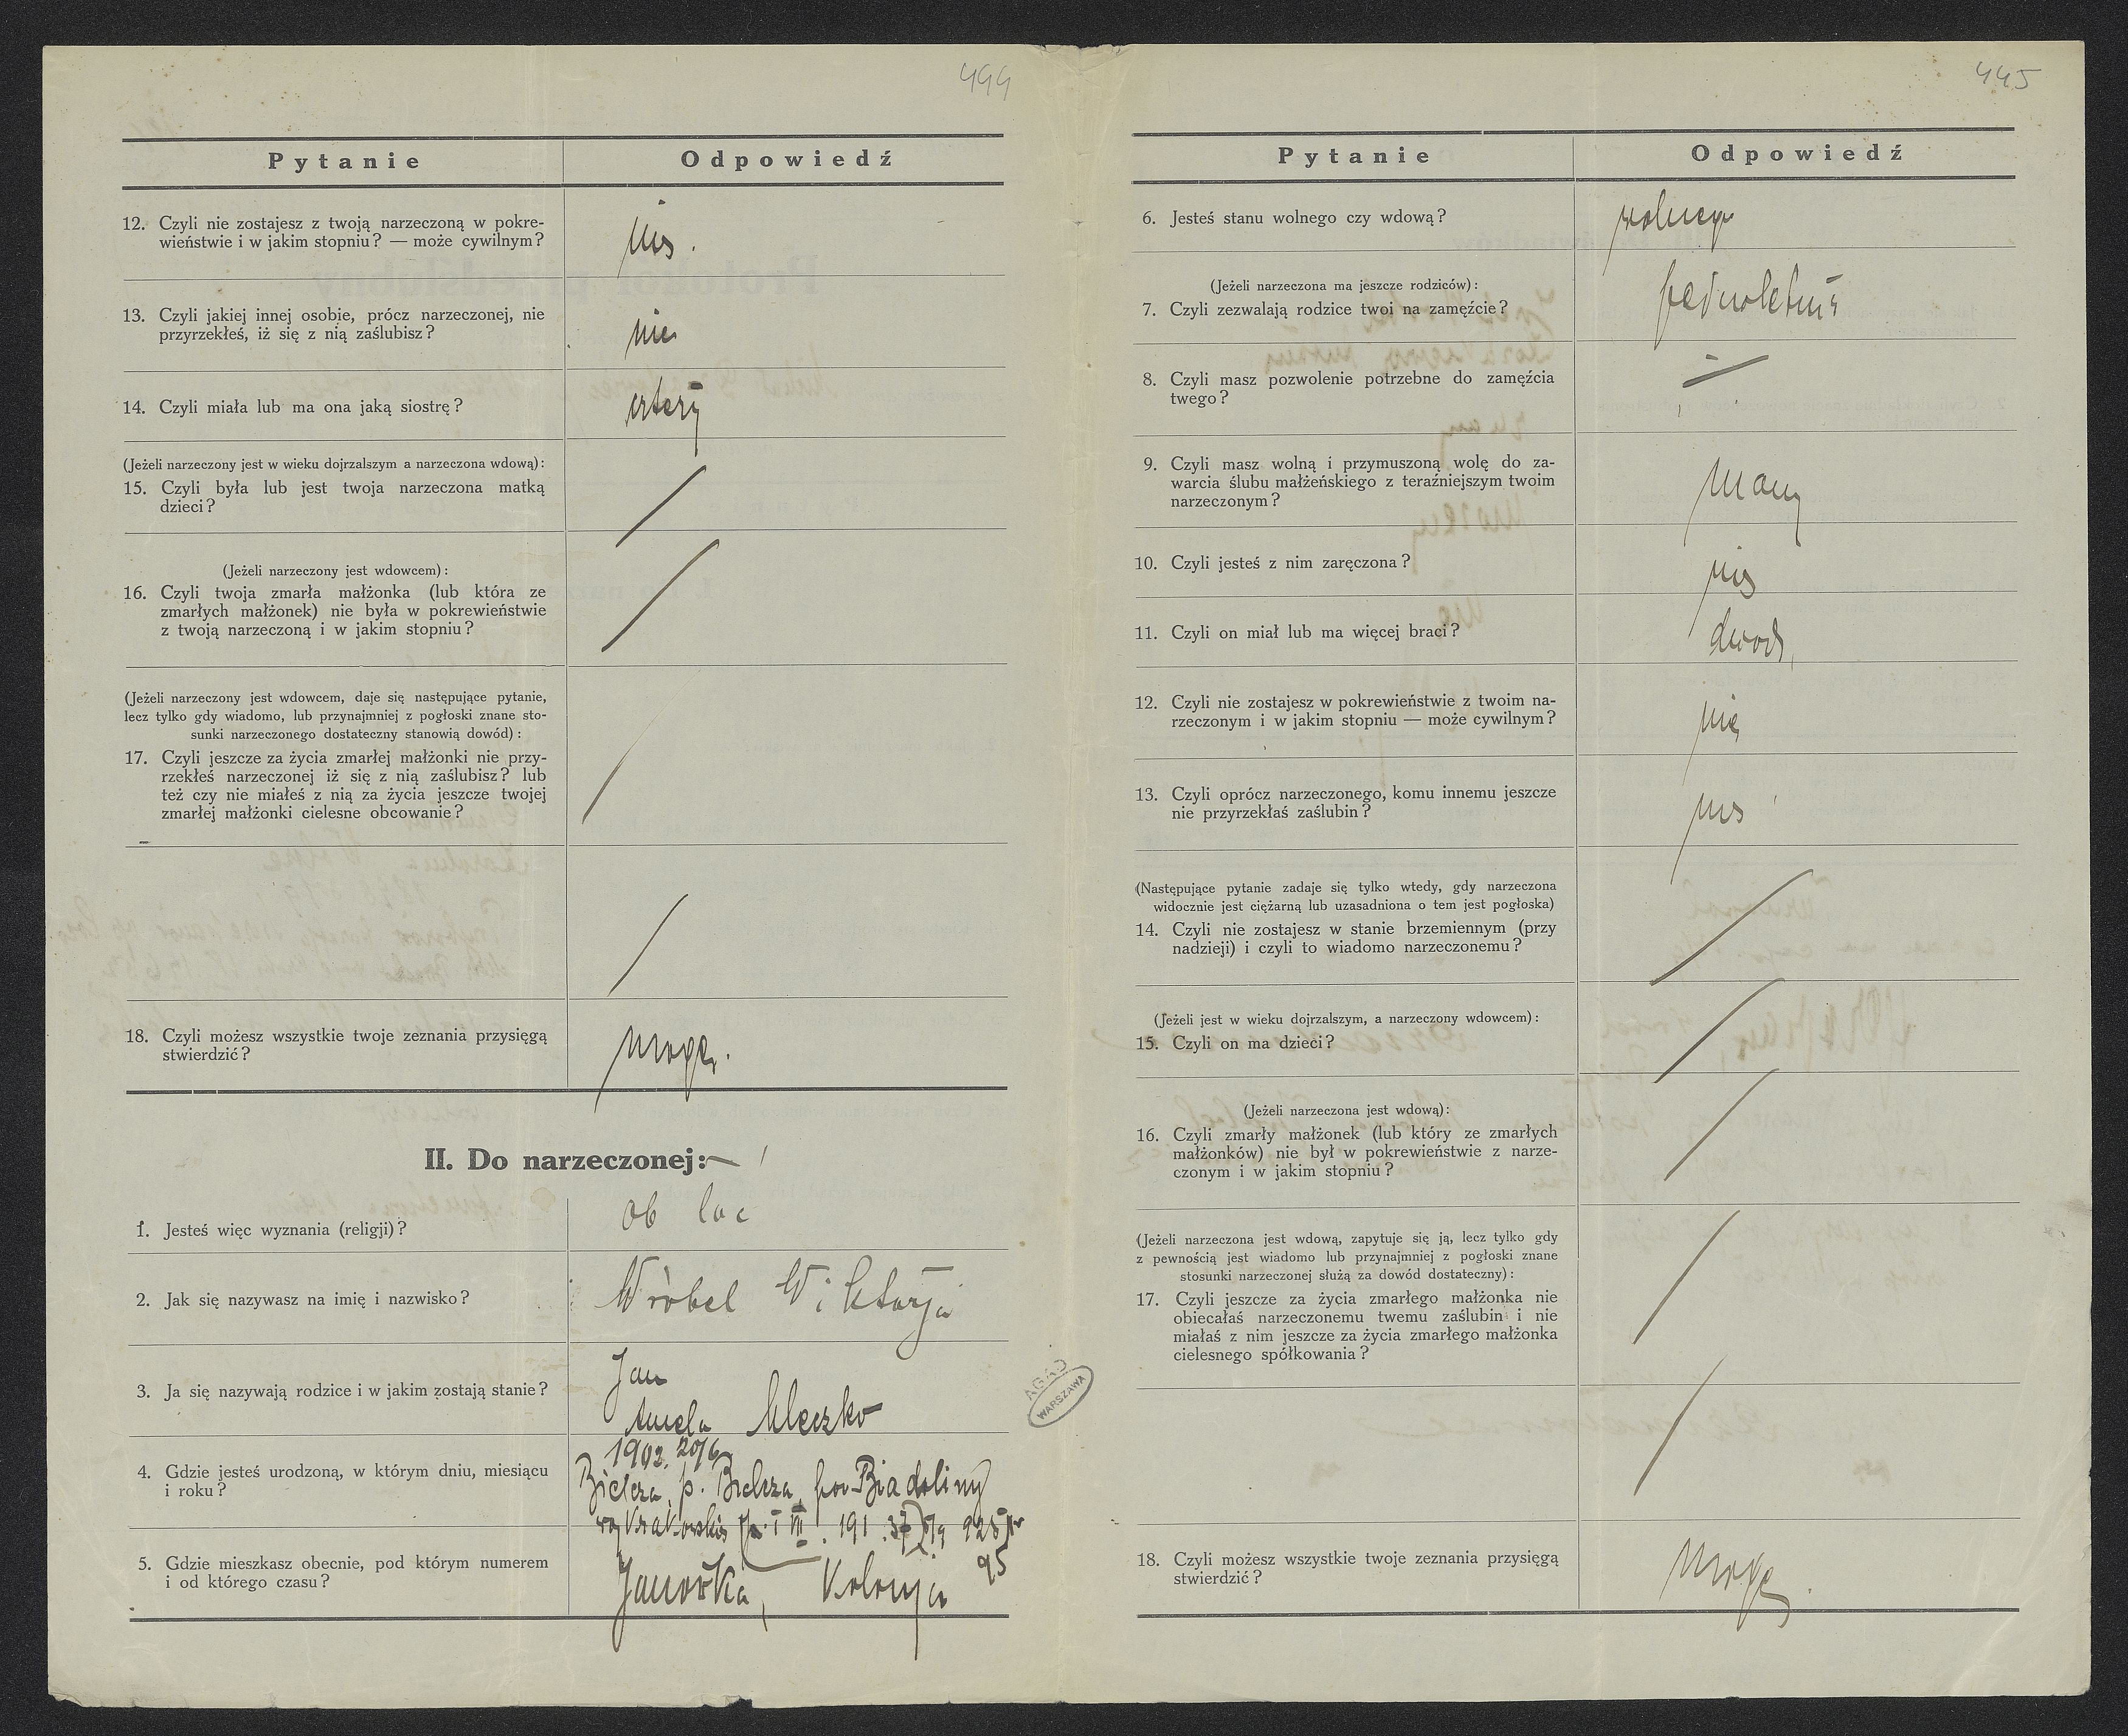 444
Pytanie Odpowiedź
12. Czyli nie zostajesz z twoją narzeczoną w pokre-
wieństwie i w jakim stopniu? — może cywilnym?
nie.
13. Czyli jakiej innej osobie, prócz narzeczonej, nie
przyrzekłeś, iż się z nią zaślubisz?
nie
14. Czyli miała lub ma ona jaką siostrę?
cztery
(Jeżeli narzeczony jest w wieku dojrzalszym a narzeczona wdową):
15. Czyli była lub jest twoja narzeczona matką
dzieci?
(Jeżeli narzeczony jest wdowcem):
16. Czyli twoja zmarła małżonka (lub która ze
zmarłych małżonek) nie była w pokrewieństwie
z twoją narzeczoną i w jakim stopniu?
(Jeżeli narzeczony jest wdowcem, daje się następujące pytanie,
lecz tylko gdy wiadomo, lub przynajmniej z pogłoski znane sto-
sunki narzeczonego dostateczny stanowią dowód):
17. Czyli jeszcze za życia zmarłej małżonki nie przy-
rzekłeś narzeczonej iż się z nią zaślubisz? lub
też czy nie miałeś z nią za życia jeszcze twojej
zmarłej małżonki cielesne obcowanie?
18. Czyli możesz wszystkie twoje zeznania przysięgą
stwierdzić?
mogę.
II. Do narzeczonej:
1. Jesteś więc wyznania (religji)?
ob łac
2. Jak się nazywasz na imię i nazwisko?
Wróbel Wiktorja
3. Ja się nazywają rodzice i w jakim zostają stanie?
Jan
Aniela Mleczko
4. Gdzie jesteś urodzoną, w którym dniu, miesiącu
i roku?
1902. 20/6
Bielcza, p. Bielcza, Biadoliny
Krakowskie
5. Gdzie mieszkasz obecnie, pod którym numerem
i od którego czasu?
Janówka, Kolonja 95
AGAD
WARSZAWA
445
Pytanie Odpowiedź
6. Jesteś stanu wolnego czy wdową?
wolnego
(Jeżeli narzeczona ma jeszcze rodziców):
7. Czyli zezwalają rodzice twoi na zamęźcie?
pełnoletnia
8. Czyli masz pozwolenie potrzebne do zamęźcia
twego?
9. Czyli masz wolną i przymuszoną wolę do za-
warcia ślubu małżeńskiego z teraźniejszym twoim
narzeczonym?
mam
10. Czyli jesteś z nim zaręczona?
nie
11. Czyli on miał lub ma więcej braci?
dwóch,
12. Czyli nie zostajesz w pokrewieństwie z twoim na-
rzeczonym i w jakim stopniu — może cywilnym?
nie
13. Czyli oprócz narzeczonego, komu innemu jeszcze
nie przyrzekłaś zaślubin?
nie
(Następujące pytanie zadaje się tylko wtedy, gdy narzeczona
widocznie jest ciężarną lub uzasadniona o tem jest pogłoska)
14. Czyli nie zostajesz w stanie brzemiennym (przy
nadzieji) i czyli to wiadomo narzeczonemu?
(Jeżeli jest w wieku dojrzalszym, a narzeczony wdowcem):
15. Czyli on ma dzieci?
(Jeżeli narzeczona jest wdową):
16. Czyli zmarły małżonek (lub który ze zmarłych
małżonków) nie był w pokrewieństwie z narze-
czonym i w jakim stopniu?
(Jeżeli narzeczona jest wdową, zapytuje się ją, lecz tylko gdy
z pewnością jest wiadomo lub przynajmniej z pogłoski znane
stosunki narzeczonej służą za dowód dostateczny):
17. Czyli jeszcze za życia zmarłego małżonka nie
obiecałaś narzeczonemu twemu zaślubin i nie
miałaś z nim jeszcze za życia zmarłego małżonka
cielesnego spółkowania?
18. Czyli możesz wszystkie twoje zeznania przysięgą
stwierdzić?
mogę.